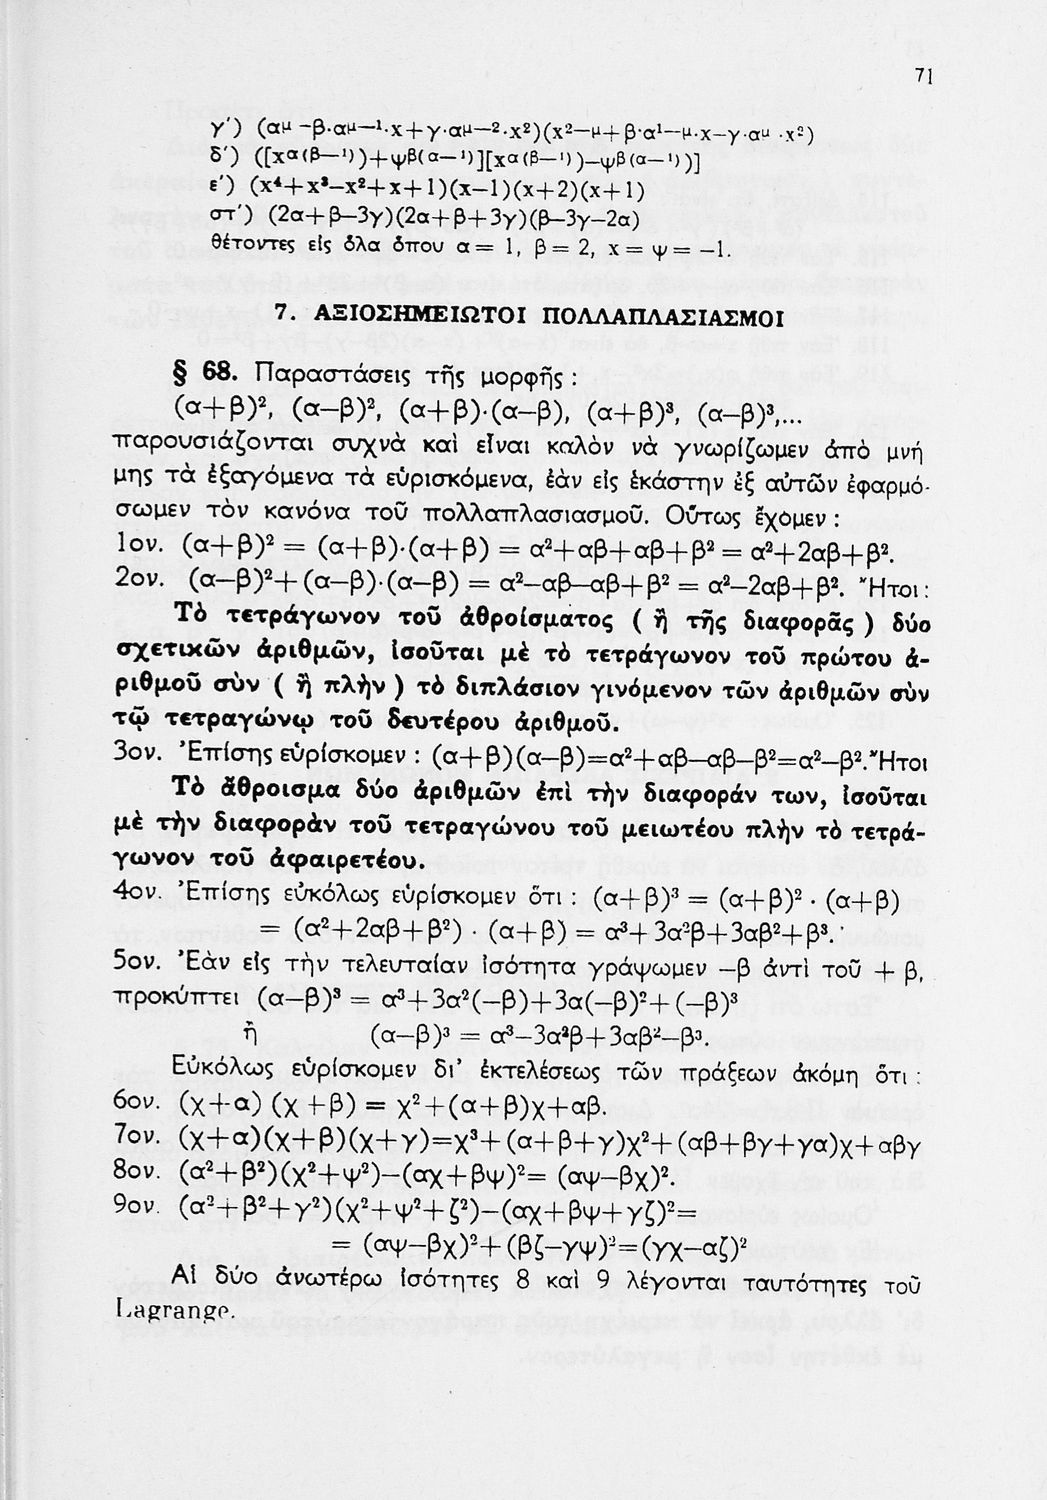 71
γ′) (αμ –β·αμ—¹·x+γ·αμ—²·x²)(x²—μ+β·α¹—μ·x—γ·αμ ·x²)
δ′) ([xα(β—¹))+ψβ(α—¹)][xα(β—¹))–ψβ(α—¹))]
ε′) (x⁴+x³–x²+x+1)(x–1)(x+2)(x+1)
στ′) (2α+β–3γ)(2α+β+3γ)(β–3γ–2α)
θέτοντες εἰς ὅλα ὅπου α= 1, β= 2, x = ψ= –1.
7. ΑΞΙΟΣΗΜΕΙΩΤΟΙ ΠΟΛΛΑΠΛΑΣΙΑΣΜΟΙ
§ 68. Παραστάσεις τῆς μορφῆς :
(α+β)², (α–β)², (α+β)·(α–β), (α+β)³, (α–β)³,...
παρουσιάζονται συχνὰ καὶ εἶναι καλὸν νὰ γνωρίζωμεν ἀπὸ μνή
μης τὰ ἐξαγόμενα τὰ εὑρισκόμενα, ἐὰν εἰς ἑκάστην ἐξ αὐτῶν ἐφαρμό-
σωμεν τὸν κανόνα τοῦ πολλαπλασιασμοῦ. Οὕτως ἔχομεν :
1ον. (α+β)² = (α+β)·(α+β) = α²+αβ+αβ+β² = α²+2αβ+β².
2ον. (α–β)²+(α–β)·(α–β) = α²–αβ–αβ+β² = α²–2αβ+β². Ἤτοι :
Τὸ τετράγωνον τοῦ ἀθροίσματος ( ἢ τῆς διαφορᾶς ) δύο
σχετικῶν ἀριθμῶν, ἰσοῦται μὲ τὸ τετράγωνον τοῦ πρώτου ἀ-
ριθμοῦ σὺν ( ἢ πλὴν ) τὸ διπλάσιον γινόμενον τῶν ἀριθμῶν σὺν
τῷ τετραγώνῳ τοῦ δευτέρου ἀριθμοῦ.
3ον. Ἐπίσης εὑρίσκομεν : (α+β)(α–β)=α²+αβ–αβ–β²=α²–β².Ἤτοι
Τὸ ἄθροισμα δύο ἀριθμῶν ἐπὶ τὴν διαφοράν των, ἰσοῦται
μὲ τὴν διαφορὰν τοῦ τετραγώνου τοῦ μειωτέου πλὴν τὸ τετρά-
γωνον τοῦ ἀφαιρετέου.
4ον. Ἐπίσης εὐκόλως εὑρίσκομεν ὅτι : (α+β)³ = (α+β)² · (α+β)
= (α²+2αβ+β²) · (α+β) = α³+3α²β+3αβ²+β³.
5ον. Ἐὰν εἰς τὴν τελευταίαν ἰσότητα γράψωμεν –β ἀντὶ τοῦ + β,
προκύπτει (α–β)³ = α³+3α²(–β)+3α(–β)²+(–β)³
ἢ (α–β)³ = α³–3α²β+3αβ²–β³.
Εὐκόλως εὑρίσκομεν δι’ ἐκτελέσεως τῶν πράξεων ἀκόμη ὅτι :
6ον. (χ+α) (χ +β) = χ²+(α+β)χ+αβ.
7ον. (χ+α)(χ+β)(χ+γ)=χ³+(α+β+γ)χ²+(αβ+βγ+γα)χ+αβγ
8ον. (α²+β²)(χ²+ψ²)–(αχ+βψ)²= (αψ–βχ)².
9ον. (α²+β²+γ²)(χ²+ψ²+ζ²)–(αχ+βψ+γζ)²=
= (αψ–βχ)²+(βζ–γψ)²=(γχ–αζ)²
Αἱ δύο ἀνωτέρω ἰσότητες 8 καὶ 9 λέγονται ταυτότητες τοῦ
Lagrange.